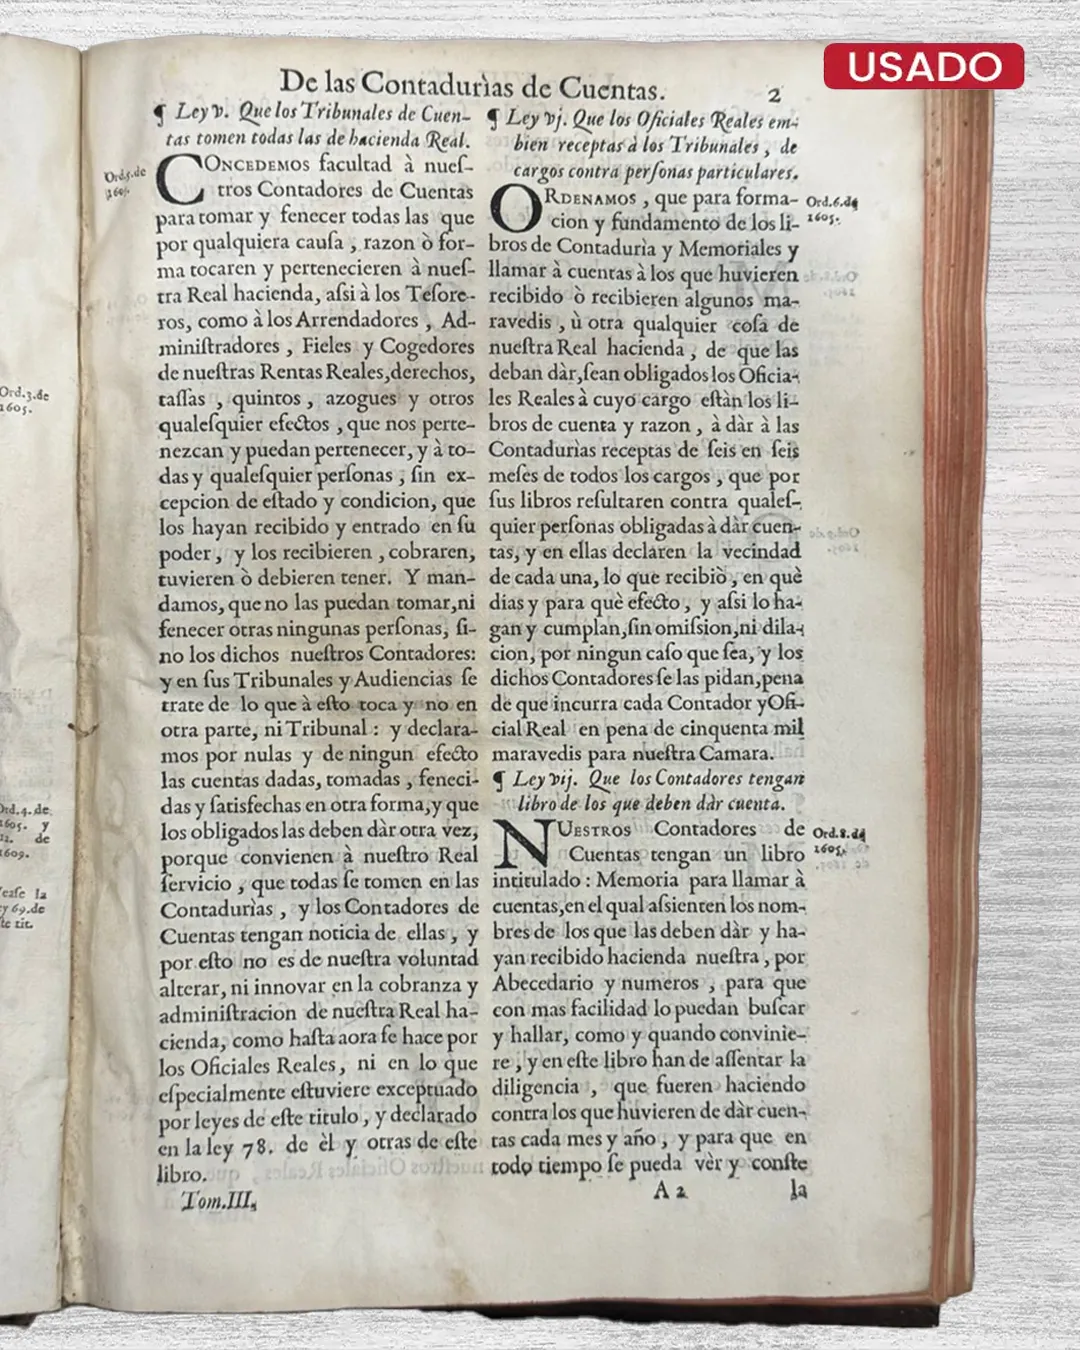 USADO
De las Contadurìas de Cuentas.
2
¶ Ley v. Que los Tribunales de Cuen-
tas tomen todas las de hacienda Real.
Ord.5.de
1605.
CONCEDEMOS facultad à nueſ-
tros Contadores de Cuentas
para tomar y fenecer todas las que
por qualquiera cauſa , razon ò for-
ma tocaren y pertenecieren à nueſ-
tra Real hacienda, aſsi à los Teſore-
ros, como à los Arrendadores , Ad-
miniſtradores , Fieles y Cogedores
de nueſtras Rentas Reales,derechos,
taſſas , quintos , azogues y otros
qualeſquier efectos , que nos perte-
nezcan y puedan pertenecer, y à to-
das y qualeſquier perſonas , ſin ex-
cepcion de eſtado y condicion, que
los hayan recibido y entrado en ſu
poder , y los recibieren , cobraren,
tuvieren ò debieren tener. Y man-
damos, que no las puedan tomar,ni
fenecer otras ningunas perſonas, ſi-
no los dichos nueſtros Contadores:
y en ſus Tribunales y Audiencias ſe
trate de lo que à eſto toca y no en
otra parte, ni Tribunal : y declara-
mos por nulas y de ningun efecto
las cuentas dadas, tomadas , feneci-
das y ſatisfechas en otra forma,y que
los obligados las deben dàr otra vez,
porque convienen à nueſtro Real
ſervicio , que todas ſe tomen en las
Contadurìas , y los Contadores de
Cuentas tengan noticia de ellas , y
por eſto no es de nueſtra voluntad
alterar, ni innovar en la cobranza y
adminiſtracion de nueſtra Real ha-
cienda, como haſta aora ſe hace por
los Oficiales Reales, ni en lo que
eſpecialmente eſtuviere exceptuado
por leyes de eſte titulo , y declarado
en la ley 78. de èl y otras de eſte
libro.
Tom.III.
¶ Ley vj. Que los Oficiales Reales em-
bien receptas à los Tribunales , de
cargos contra perſonas particulares.
ORDENAMOS , que para forma-
Ord.6.de
1605.
cion y fundamento de los li-
bros de Contadurìa y Memoriales y
llamar à cuentas à los que huvieren
recibido ò recibieren algunos ma-
ravedis , ù otra qualquier coſa de
nueſtra Real hacienda , de que las
deban dàr,ſean obligados los Oficia-
les Reales à cuyo cargo eſtàn los li-
bros de cuenta y razon , à dàr à las
Contadurìas receptas de ſeis en ſeis
meſes de todos los cargos , que por
ſus libros reſultaren contra qualeſ-
quier perſonas obligadas à dàr cuen-
tas, y en ellas declaren la vecindad
de cada una, lo que recibiò , en què
dias y para què efecto , y aſsi lo ha-
gan y cumplan,ſin omiſsion,ni dila-
cion, por ningun caſo que ſea, y los
dichos Contadores ſe las pidan,pena
de que incurra cada Contador y Ofi-
cial Real en pena de cinquenta mil
maravedis para nueſtra Camara.
¶ Ley vij. Que los Contadores tengan
libro de los que deben dàr cuenta.
NUESTROS Contadores de
Ord.8.de
1605.
Cuentas tengan un libro
intitulado : Memoria para llamar à
cuentas,en el qual aſsienten los nom-
bres de los que las deben dàr y ha-
yan recibido hacienda nueſtra , por
Abecedario y numeros , para que
con mas facilidad lo puedan buſcar
y hallar, como y quando convinie-
re , y en eſte libro han de aſſentar la
diligencia , que fueren haciendo
contra los que huvieren de dàr cuen-
tas cada mes y año , y para que en
todo tiempo ſe pueda vèr y conſte
A 2
la
Ord.3.de
1605.
Ord.4.de
1605. y
de
1609.
la
ley 69.de
tit.